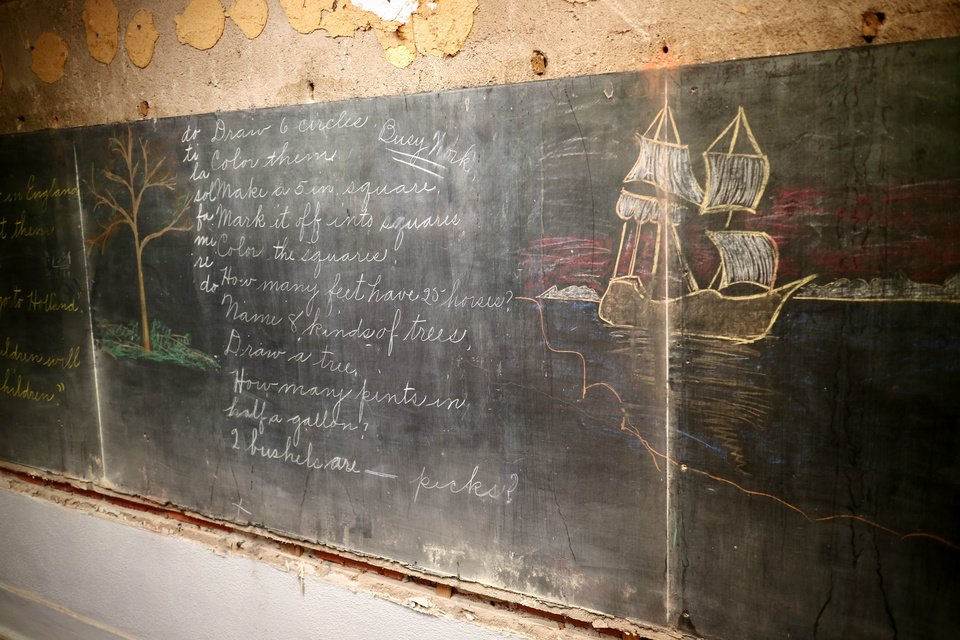 in England
them
go to Holland.
ildren will
children"
Busy Work
do Draw 6 circles
ti Color them
la
sol Make a 5 in. square.
fa Mark it off into squares
mi Color the squares.
re
do How many feet have 25 horses?
Name 8 kinds of trees.
Draw a tree.
How many pints in
half a gallon?
2 bushels are — picks?